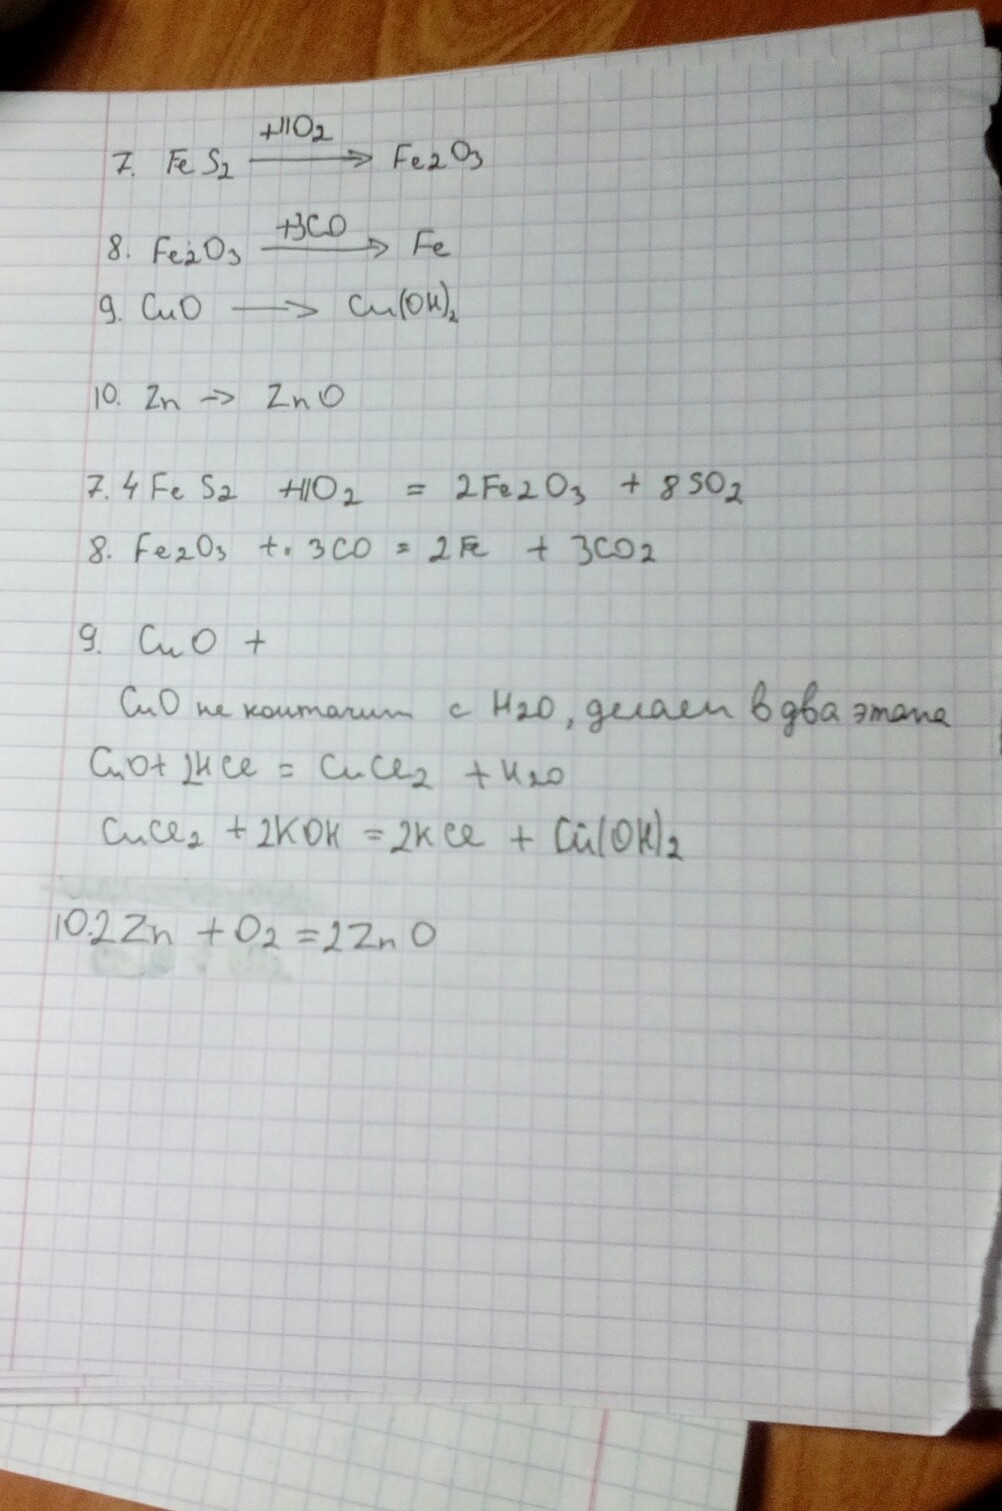 7. FeS2 +11O2 → Fe2O3
8. Fe2O3 +3CO → Fe
9. CuO → Cu(OH)2
10. Zn → ZnO
7. 4FeS2 +11O2 = 2Fe2O3 + 8SO2
8. Fe2O3 + 3CO = 2Fe + 3CO2
9. CuO +
CuO не контачит с H2O, делаем в два этапа
CuO + 2HCl = CuCl2 + H2O
CuCl2 + 2KOH = 2KCl + Cu(OH)2
10. 2Zn + O2 = 2ZnO